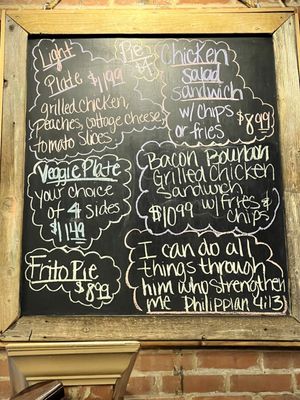 Light
Plate $11.99
Grilled chicken,
Peaches, cottage cheese,
tomato slices.
Pie
$4
Chicken
salad
sandwich
w/ chips
or fries
$8.99
Veggie Plate
your choice
of 4 sides
$11.49
Bacon Bourbon
Grilled chicken
Sandwich
$10.99 w/ fries &
chips
Frito Pie
$8.99
I can do all
things through
him who strengthen
me Philippian 4:13